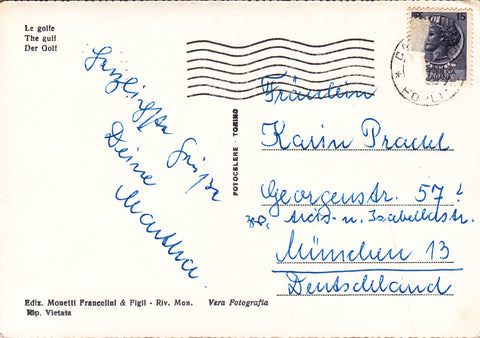 Le golfe
The gulf
Der Golf
Herzlichste Grüsse
Deine
Martina.
FOTOCELERE · TORINO
15
Fräulein
Karin Pradel
Georgenstr. 57
zw. Arcis- u. Isabellastr.
München 13
Deutschland
Ediz. Monetti Françolini & Figli - Riv. Mon. Vera Fotografia
Rip. Vietata